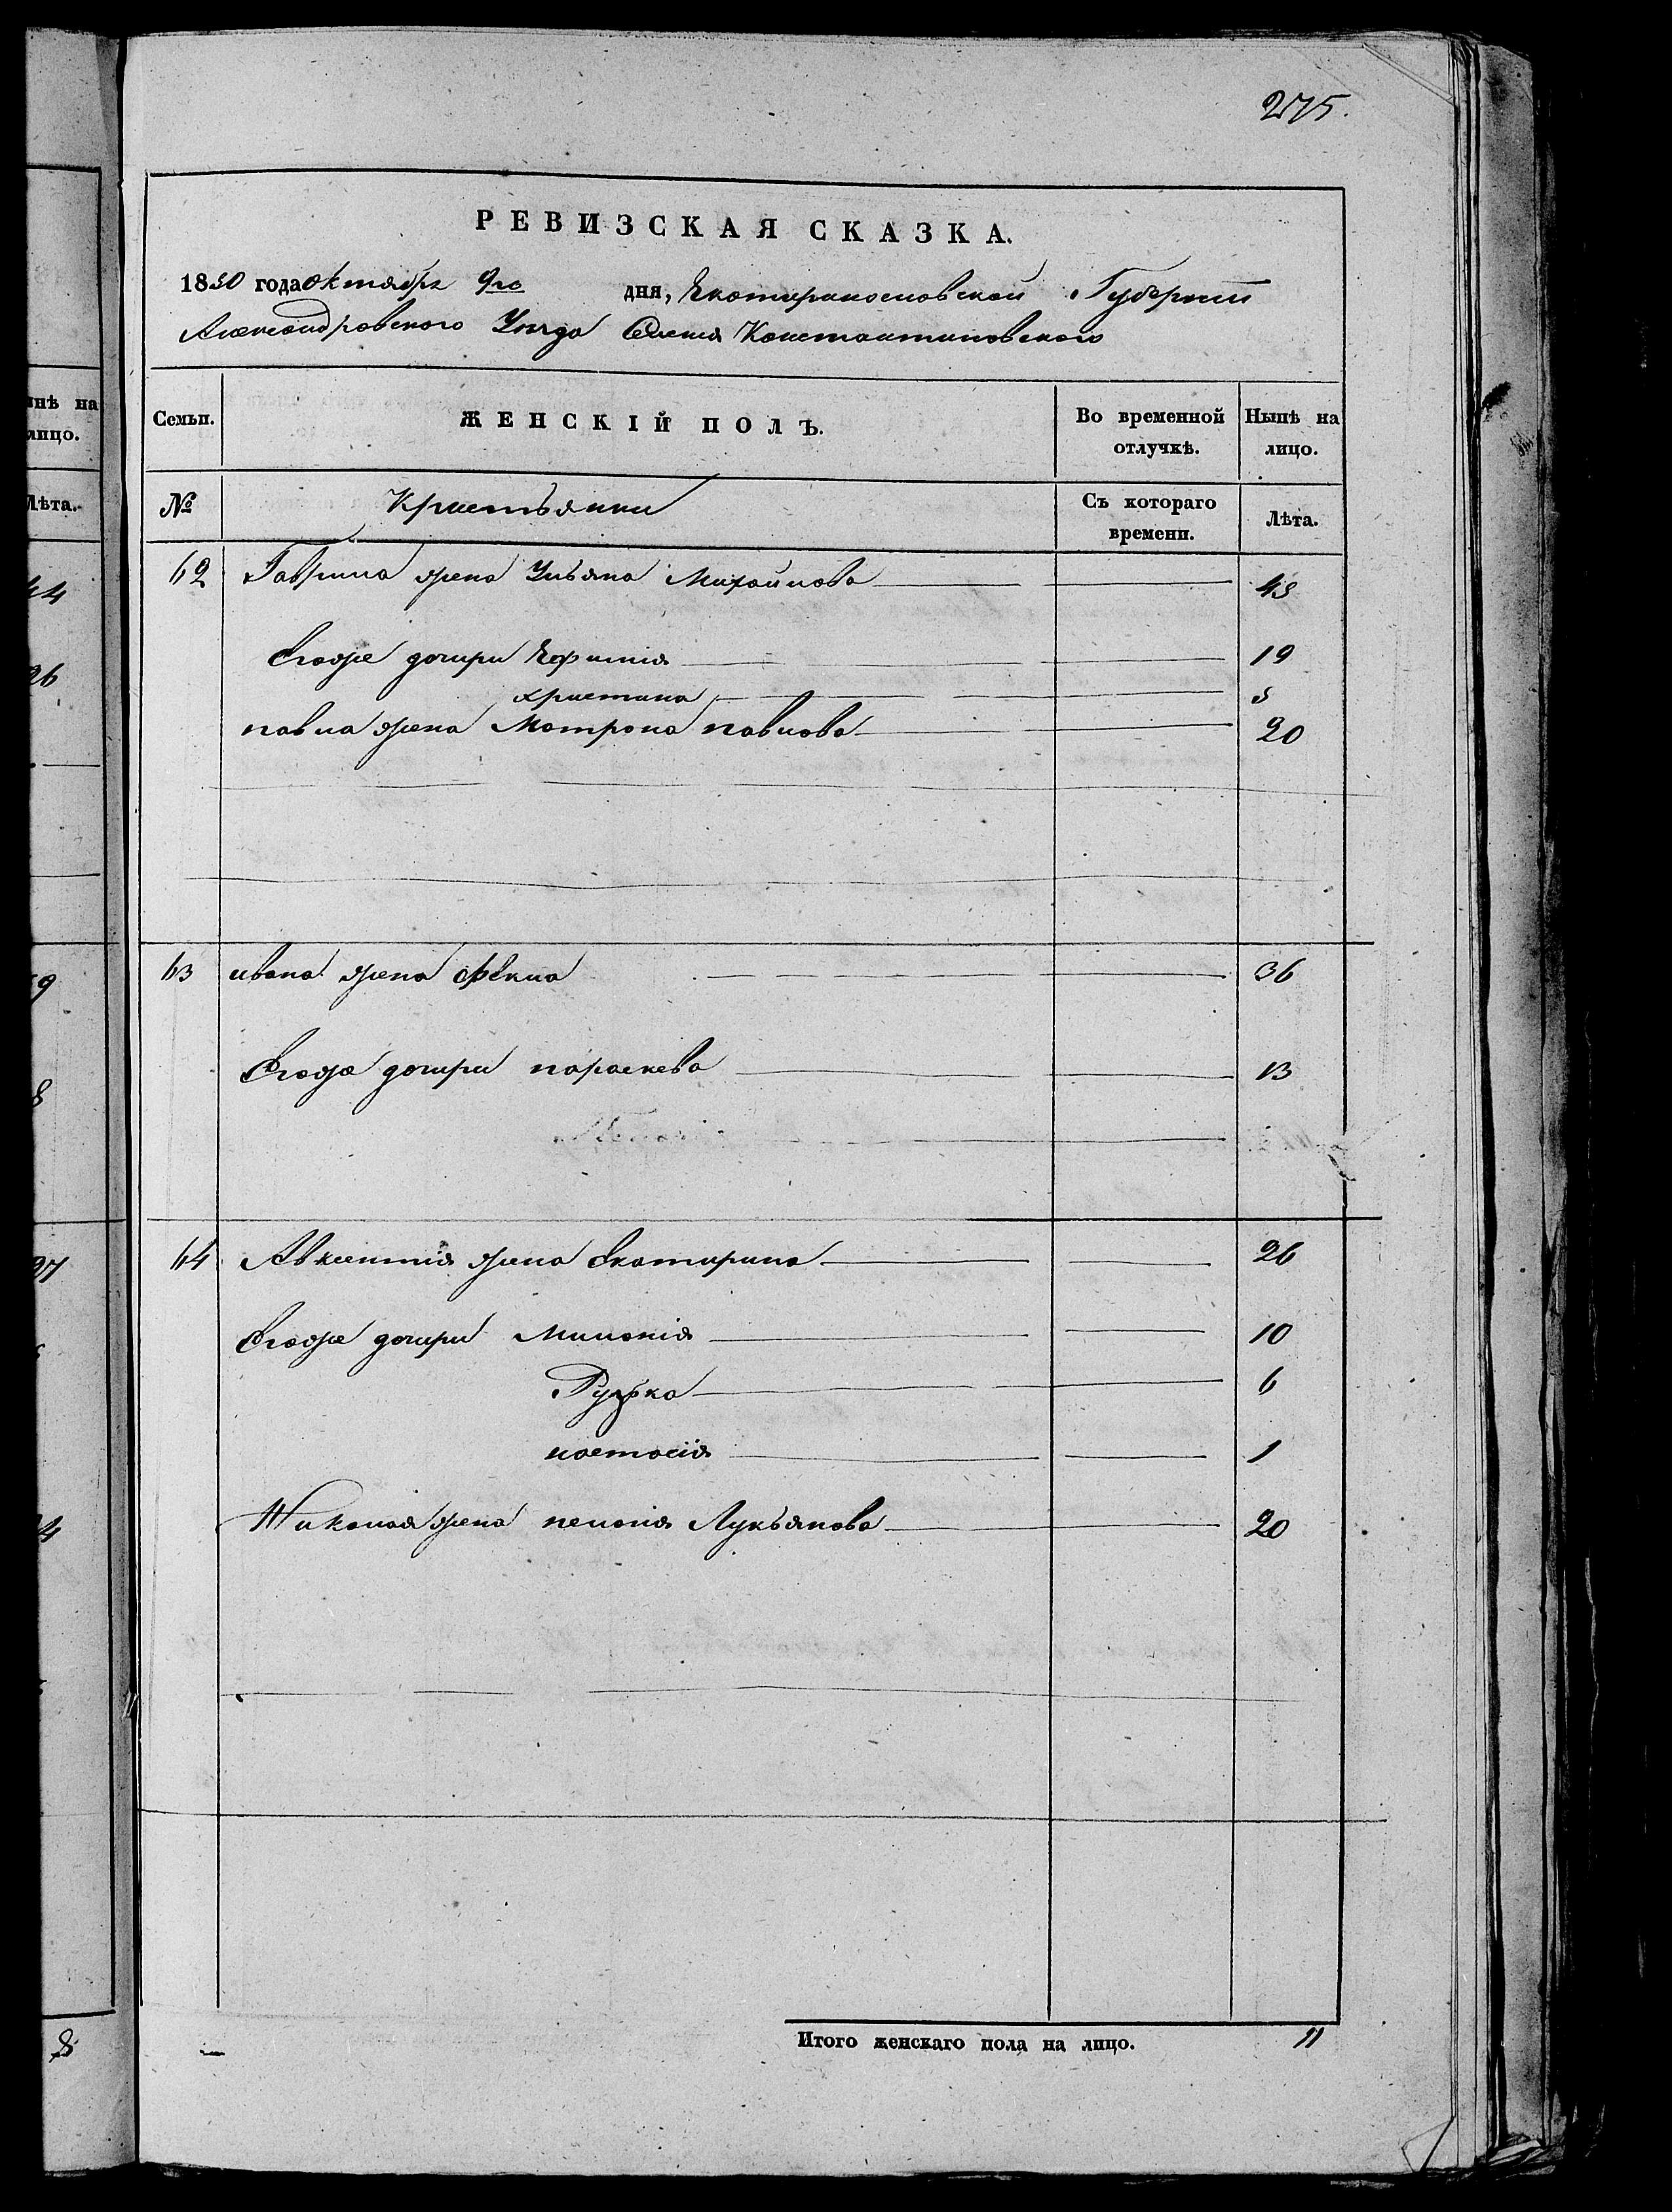 275.
РЕВИЗСКАЯ СКАЗКА.
1850 года октября 9го дня, Екатеринославской Губернии
Александровского Уезда Селения Константиновского
Семьи. ЖЕНСКІЙ ПОЛЪ. Во временной отлучкѣ. Нынѣ на лицо.
№ Крестьянки Съ котораго времени. Лѣта.
62 Гаврила жена Ульяна Михайлова 43
Егоже дочери Ефимія 19
христина
павла жена Матрона павлова 20
63 ивана жена Фекла 36
Егоже дочери параскева 13
64 Авксентія жена Екатерина 26
Егоже дочери Миланія 10
6
настасія 1
Николая жена пелагія Лукьянова 20
Итого женскаго пола на лицо. 11
нѣ на
лицо.
Лѣта.
44
26
9
8
8